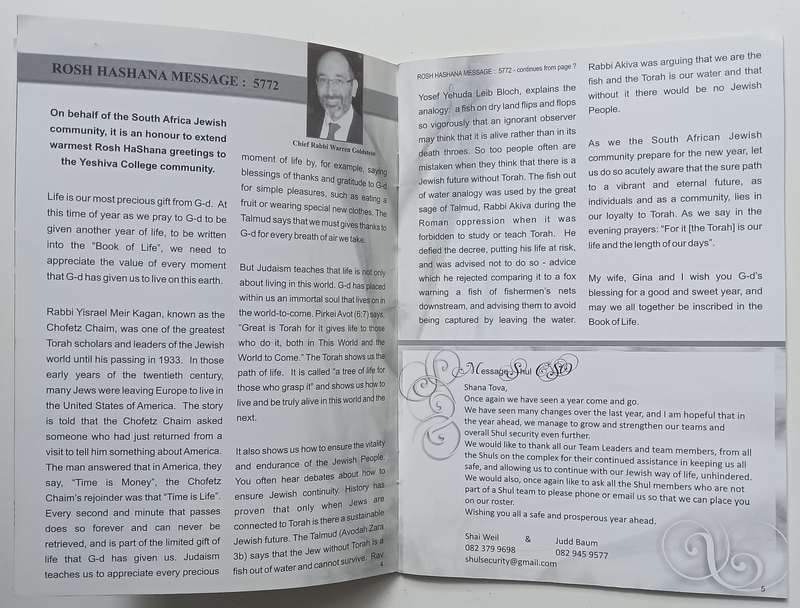 ROSH HASHANA MESSAGE : 5772
Chief Rabbi Warren Goldstein
On behalf of the South Africa Jewish
community, it is an honour to extend
warmest Rosh HaShana greetings to
the Yeshiva College community.
Life is our most precious gift from G-d. At
this time of year as we pray to G-d to be
given another year of life, to be written
into the “Book of Life”, we need to
appreciate the value of every moment
that G-d has given us to live on this earth.
Rabbi Yisrael Meir Kagan, known as the
Chofetz Chaim, was one of the greatest
Torah scholars and leaders of the Jewish
world until his passing in 1933. In those
early years of the twentieth century,
many Jews were leaving Europe to live in
the United States of America. The story
is told that the Chofetz Chaim asked
someone who had just returned from a
visit to tell him something about America.
The man answered that in America, they
say, “Time is Money”, the Chofetz
Chaim’s rejoinder was that “Time is Life”.
Every second and minute that passes
does so forever and can never be
retrieved, and is part of the limited gift of
life that G-d has given us. Judaism
teaches us to appreciate every precious
moment of life by, for example, saying
blessings of thanks and gratitude to G-d
for simple pleasures, such as eating a
fruit or wearing special new clothes. The
Talmud says that we must gives thanks to
G-d for every breath of air we take.
But Judaism teaches that life is not only
about living in this world. G-d has placed
within us an immortal soul that lives on in
the world-to-come. Pirkei Avot (6:7) says,
“Great is Torah for it gives life to those
who do it, both in This World and the
World to Come.” The Torah shows us the
path of life. It is called “a tree of life for
those who grasp it” and shows us how to
live and be truly alive in this world and the
next.
It also shows us how to ensure the vitality
and endurance of the Jewish People.
You often hear debates about how to
ensure Jewish continuity. History has
proven that only when Jews are
connected to Torah is there a sustainable
Jewish future. The Talmud (Avodah Zara
3b) says that the Jew without Torah is a
fish out of water and cannot survive. Rav
4
ROSH HASHANA MESSAGE : 5772 - continues from page ?
Yosef Yehuda Leib Bloch, explains the
analogy: a fish on dry land flips and flops
so vigorously that an ignorant observer
may think that it is alive rather than in its
death throes. So too people often are
mistaken when they think that there is a
Jewish future without Torah. The fish out
of water analogy was used by the great
sage of Talmud, Rabbi Akiva during the
Roman oppression when it was
forbidden to study or teach Torah. He
defied the decree, putting his life at risk,
and was advised not to do so - advice
which he rejected comparing it to a fox
warning a fish of fishermen’s nets
downstream, and advising them to avoid
being captured by leaving the water.
Rabbi Akiva was arguing that we are the
fish and the Torah is our water and that
without it there would be no Jewish
People.
As we the South African Jewish
community prepare for the new year, let
us do so acutely aware that the sure path
to a vibrant and eternal future, as
individuals and as a community, lies in
our loyalty to Torah. As we say in the
evening prayers: “For it [the Torah] is our
life and the length of our days”.
My wife, Gina and I wish you G-d’s
blessing for a good and sweet year, and
may we all together be inscribed in the
Book of Life.
Message Shul
Shana Tova,
Once again we have seen a year come and go.
We have seen many changes over the last year, and I am hopeful that in
the year ahead, we manage to grow and strengthen our teams and
overall Shul security even further.
We would like to thank all our Team Leaders and team members, from all
the Shuls on the complex for their continued assistance in keeping us all
safe, and allowing us to continue with our Jewish way of life, unhindered.
We would also, once again like to ask all the Shul members who are not
part of a Shul team to please phone or email us so that we can place you
on our roster.
Wishing you all a safe and prosperous year ahead,
Shai Weil & Judd Baum
082 379 9698 082 945 9577
shulsecurity@gmail.com
5